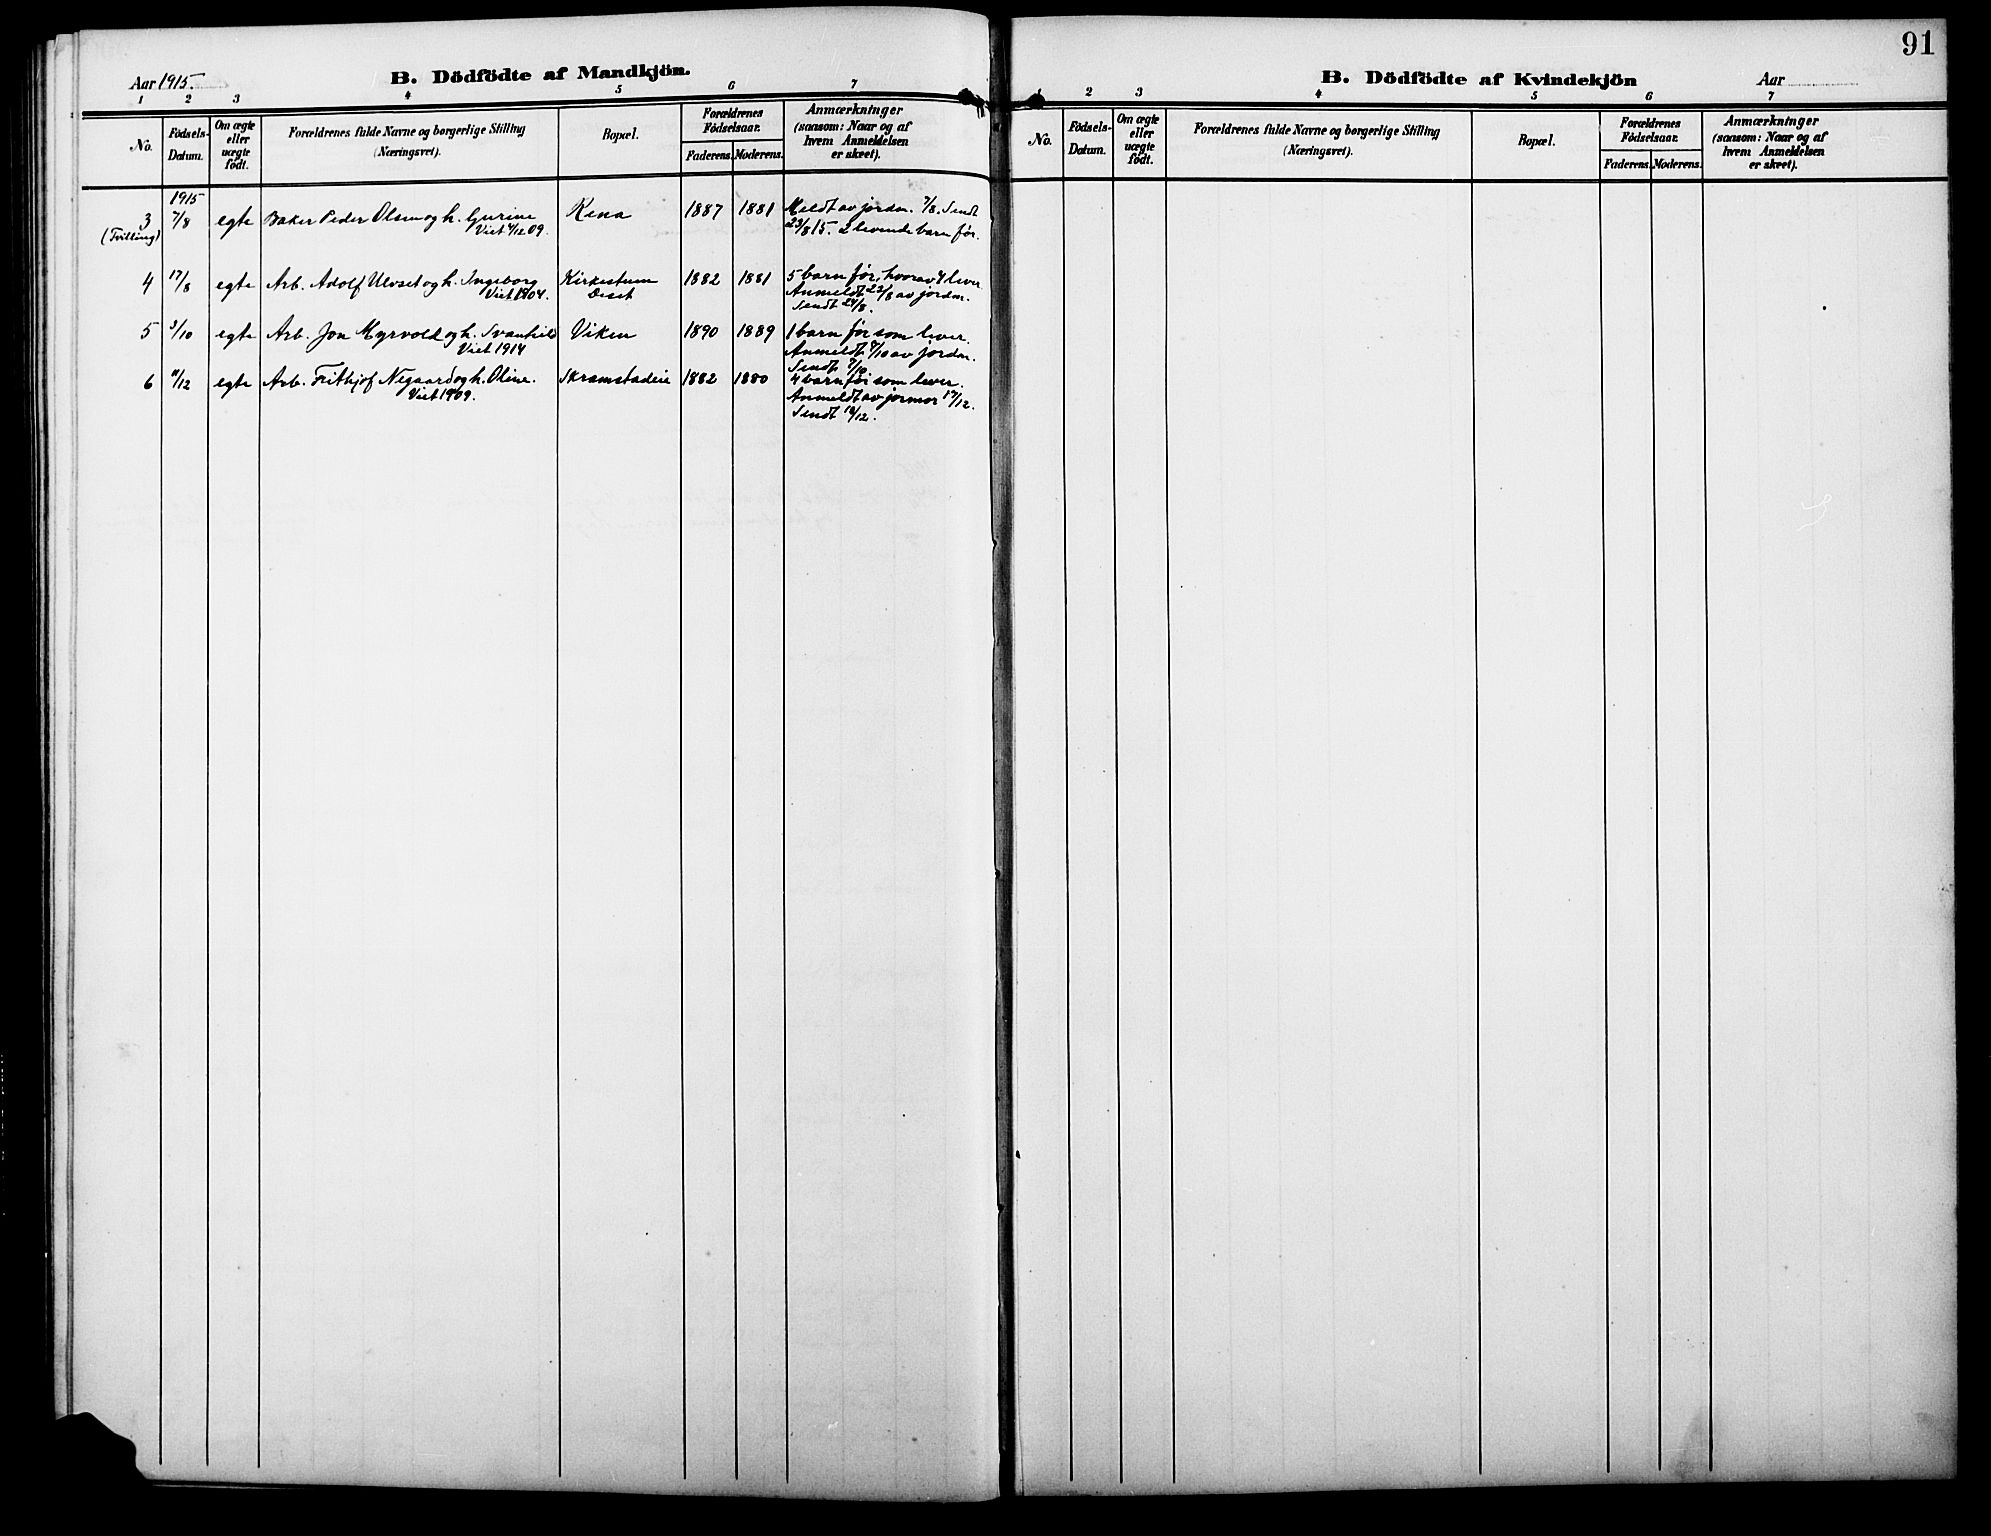 Aar 1915.
B. Dödfödte af Mandkjön.
1 2 3 4 5 6 7
No.
Födsels-Datum.
Om ægte eller uægte födt.
Forældrenes fulde Navne og borgerlige Stilling
(Næringsvei).
Bopæl.
Forældrenes Födselsaar.
Faderens. Moderens.
Anmærkninger
(saasom: Naar og af
hvem Anmeldelsen
er skeet).
1915
3 7/8 egte Baker Peder Olsen og h. Gurine Rena 1887 1881 Meldt av jordm. 7/8. Sendt
(Tvilling) Viet 4/12 09. 23/8 15. 2 levende barn før.
4 17/8 egte Arb. Adolf Ulvset og h. Ingeborg Kirkestuen 1882 1881 5 barn før, hvorav 4 lever
Viet 1904. Deset Anmeldt 23/8 av jordm.
Sendt 24/8.
5 3/10 egte Arb. Jon Myrvold og h. Svanhild Viken 1890 1889 1 barn før som lever.
Viet 1914 Anmeldt /10 av jordm.
Sendt 7/10
6 11/12 egte Arb. Frithjof Negaard og h. Oline. Skramstadeie 1882 1880 4 barn før som lever.
Viet 1909. Anmeldt av jormor 17/12.
Sendt 18/12.
91
B. Dödfödte af Kvindekjön
Aar
1 2 3 4 5 6 7
No.
Födsels-Datum.
Om ægte eller uægte födt.
Forældrenes fulde Navne og borgerlige Stilling
(Næringsvei).
Bopæl.
Forældrenes Födselsaar.
Faderens. Moderens.
Anmærkninger
(saasom: Naar og af
hvem Anmeldelsen
er skeet).